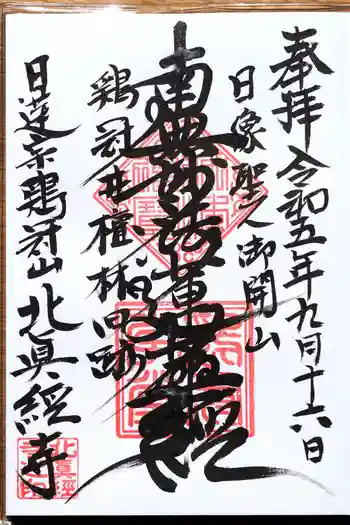 奉拝 令和五年九月十六日
日象聖人御開山
南無妙法蓮華経
鶏冠井檀林旧跡
日蓮宗鶏冠山 北真経寺